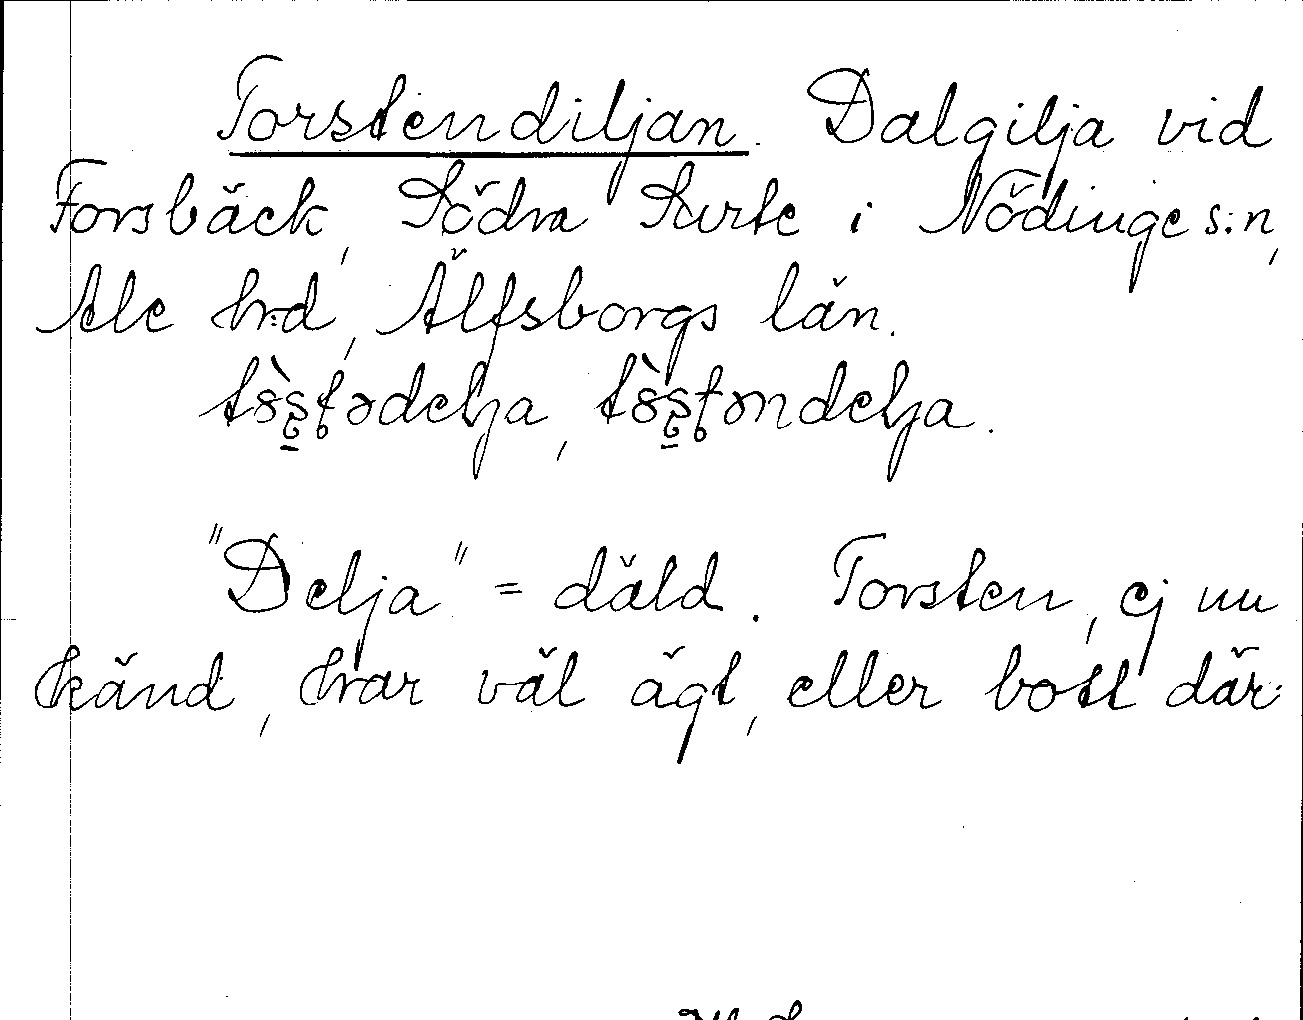 Torstendiljan. Dalgilja vid
Forsbäck, Södra Surte i Nödinge s:n,
Ale hrd, Älfsborgs län.
"Delja" = däld. Torsten, ej nu
känd, har väl ägt, eller bott där.